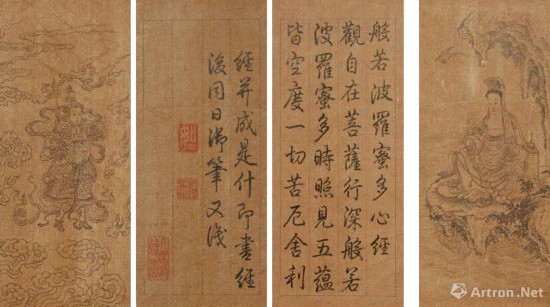 般若波羅蜜多心經
觀自在菩薩行深般若
波羅蜜多時照見五蘊
皆空度一切苦厄舍利
經并成是什即書經
後同日御筆又識
Artron.Net